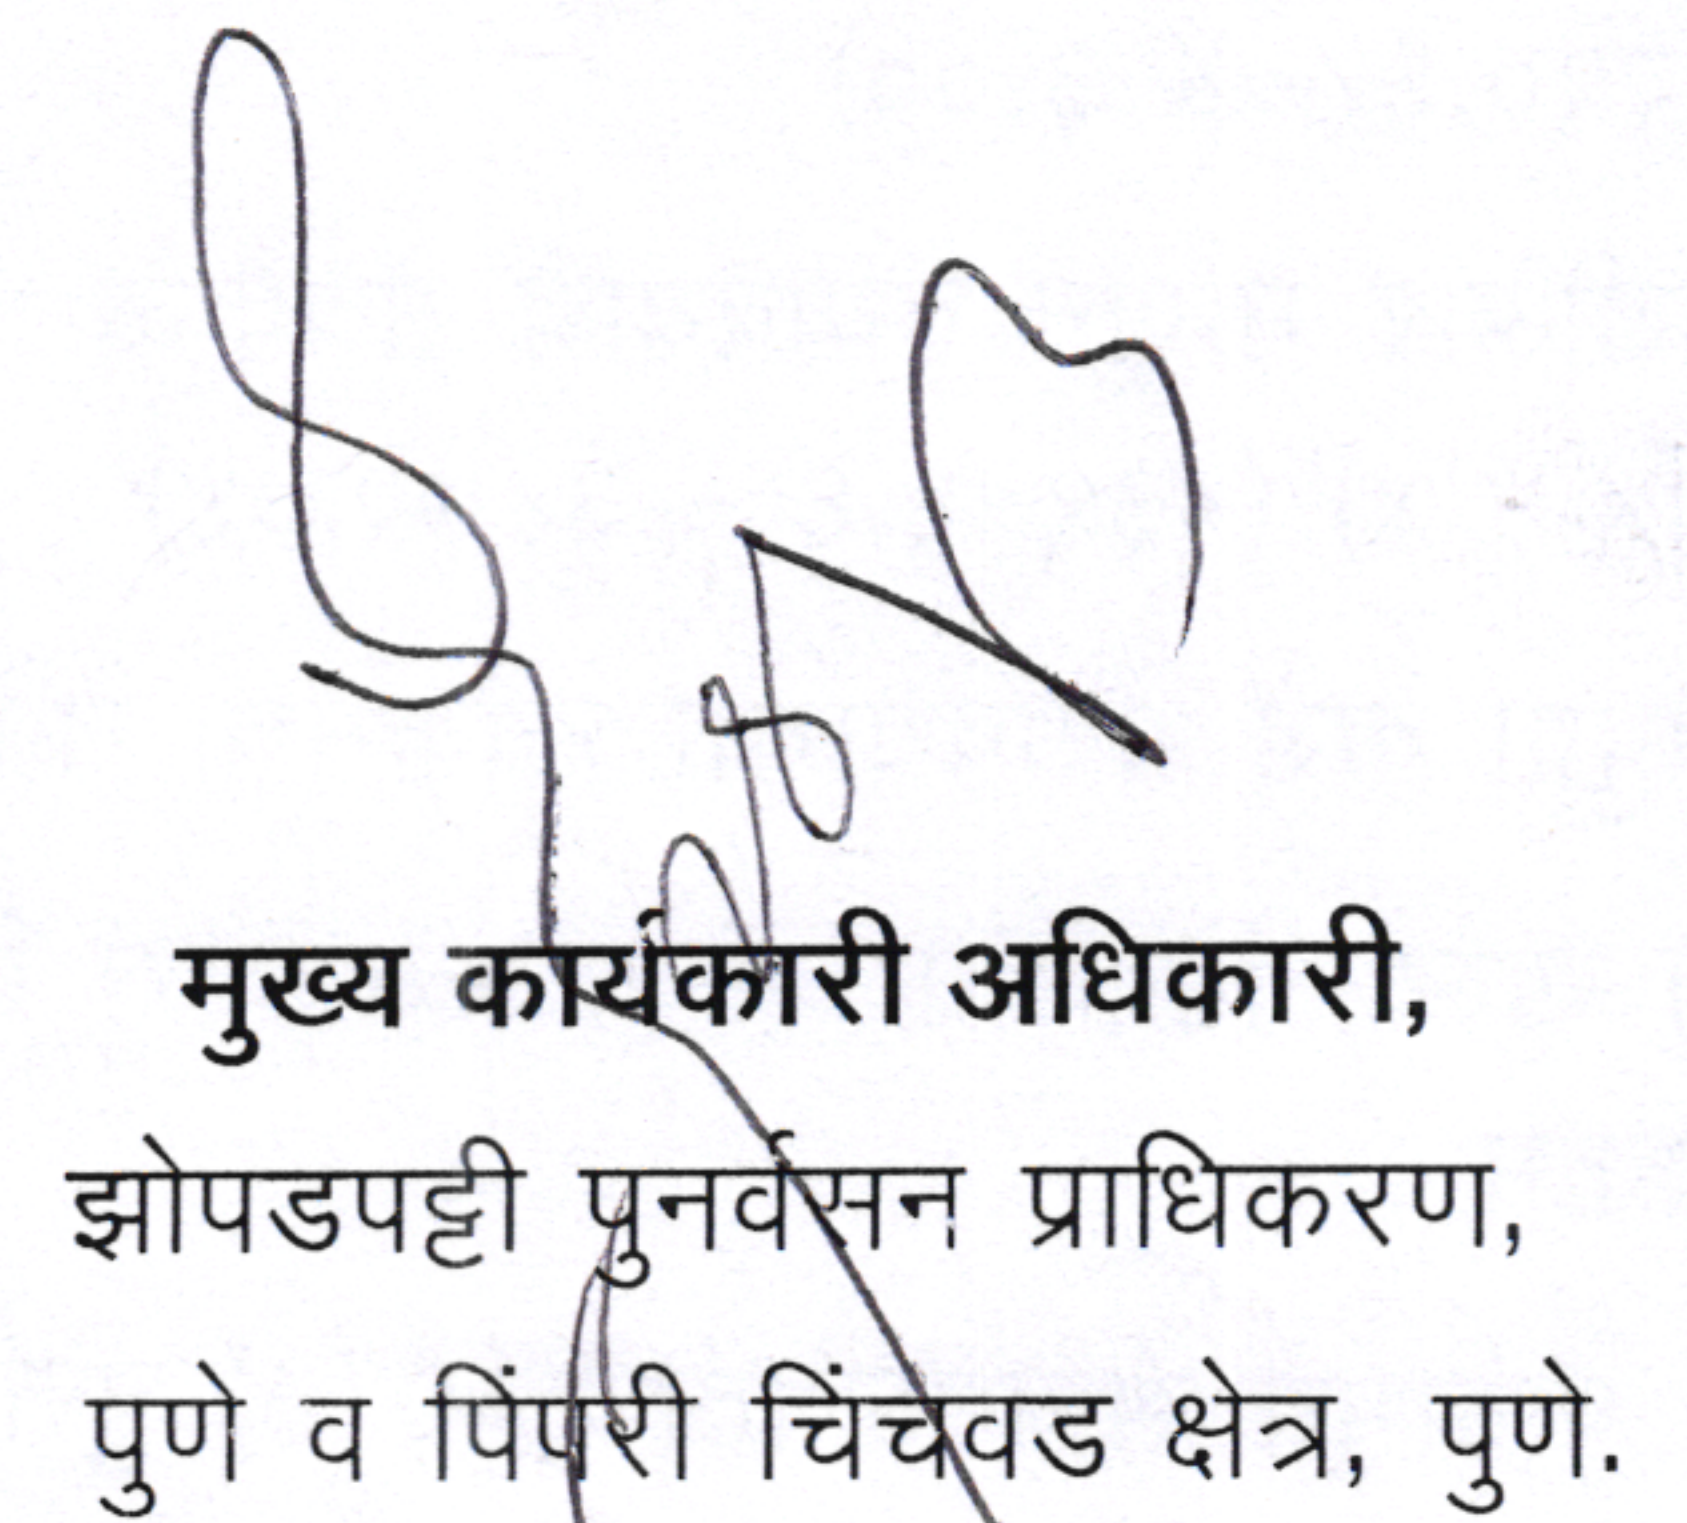 मुख्य कार्यकारी अधिकारी,
झोपडपट्टी पुनर्वसन प्राधिकरण,
पुणे व पिंपरी चिंचवड क्षेत्र, पुणे.